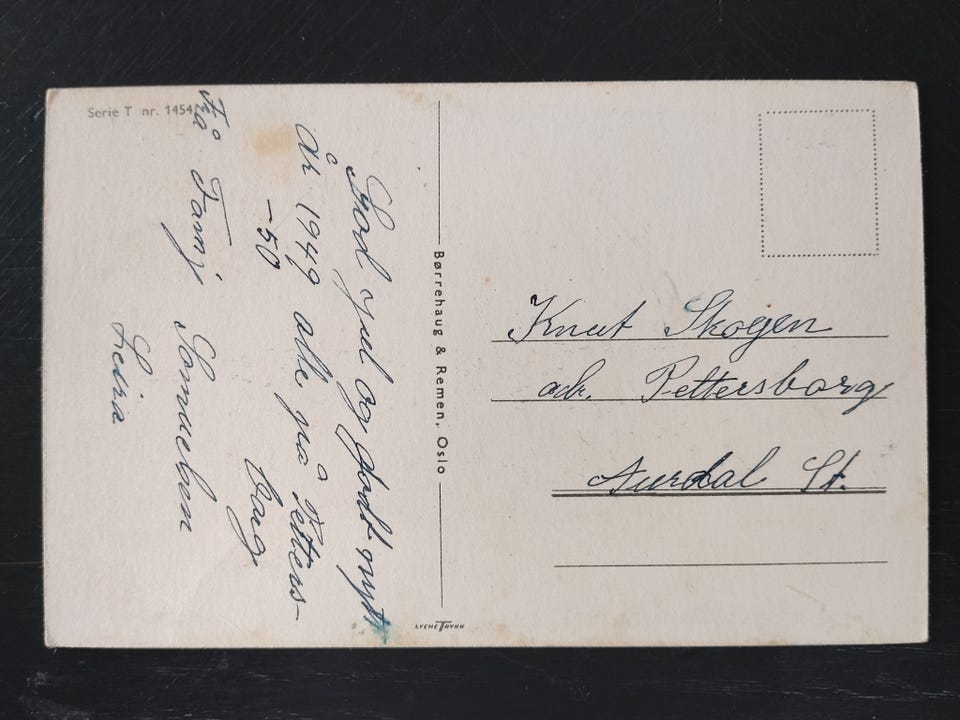 Serie T nr. 1454
God jul og godt nytt
År 1949 alle på Petters-
-50
borg
Frå Fami Samuelsen
Leira
Børrehaug & Remen, Oslo
LYCHE TRYKK
Knut Skogen
adr. Pettersborg
Aurdal St.